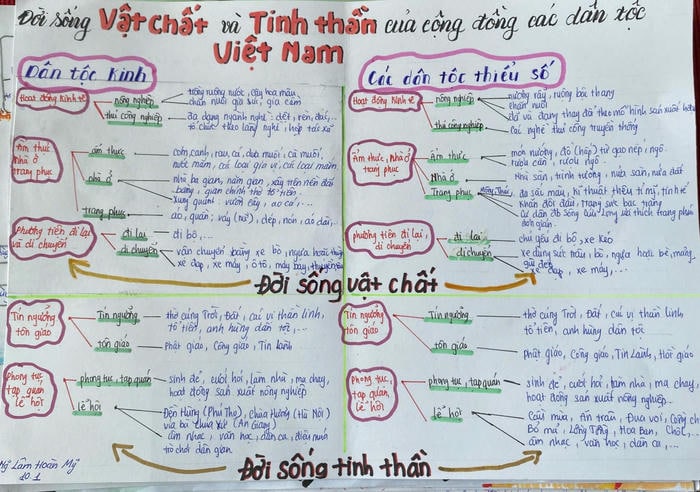 Đời sống Vật chất và Tinh thần của cộng đồng các dân tộc
Việt Nam
Dân tộc Kinh
Hoạt động kinh tế
nông nghiệp
trồng ruộng nước, cây hoa màu,
chăn nuôi gia súc, gia cầm
thủ công nghiệp
đa dạng ngành nghề: dệt, rèn, đúc,...
tổ chức theo làng nghề, hợp tác xã
Ẩm thực
nhà ở
trang phục
ẩm thực
cơm, canh, rau, cá, dưa muối, cà muối,
nước mắm, các loại gia vị, các loại mắm.
nhà ở
nhà ba gian, năm gian, xây trên nền đất
bằng, gian chính thờ tổ tiên.
xung quanh: vườn cây, ao cá,...
trang phục
áo, quần, váy (nữ), dép, nón, áo dài,..
phương tiện đi lại
và di chuyển
đi lại
đi bộ,...
di chuyển
vận chuyển bằng xe bò, ngựa hoặc
xe đạp, xe máy, ô tô, máy bay,
Các dân tộc thiểu số
Hoạt động kinh tế
nông nghiệp
nương rẫy, ruộng bậc thang
chăn nuôi
đa và dạng thay đổ theo mô hình sản xuất
thủ công nghiệp
Các nghề thủ công truyền thống
Ẩm thực, Nhà ở
trang phục
Ẩm thực
món nướng, đồ (hấp) từ gạo nếp, ngô.
rượu cần, rượu ngô.
Nhà ở
Nhà sàn, trình tường, nửa sàn, nửa đất
Trang phục
đa sắc màu, kĩ thuật thêu tỉ mỉ, tinh tế
Khăn đội đầu, trang sức bạc trắng
Cư dân đb sông Cửu Long ưa thích trang phục
đơn giản.
phương tiện đi lại,
di chuyển
đi lại
chủ yếu đi bộ, xe kéo
di chuyển
xe dùng sức trâu, bò, ngựa hoặc bè, mảng
xe đạp, xe máy,...
Đời sống vật chất
Tín ngưỡng
tôn giáo
Tín ngưỡng
thờ cúng Trời, Đất, các vị thần linh,
tổ tiên, anh hùng dân tộc,...
tôn giáo
Phật giáo, Công giáo, Tin lành
Phong tục,
tập quán
lễ hội
phong tục, tập quán
sinh đẻ, cưới hỏi, làm nhà, ma chay,
hoạt động sản xuất nông nghiệp
lễ hội
Đền Hùng (Phú Thọ), Chùa Hương (Hà Nội)
vía bà chúa Xứ (An Giang)
âm nhạc, văn học, dân ca, điệu múa
trò chơi dân gian.
Tín ngưỡng
tôn giáo
Tín ngưỡng
thờ cúng Trời, Đất, các vị thần linh,
tổ tiên, anh hùng dân tộc
tôn giáo
Phật giáo, Công giáo, Tin Lành, Hồi giáo
Phong tục,
tập quán,
lễ hội
phong tục, tập quán
sinh đẻ, cưới hỏi, làm nhà, ma chay,
hoạt động sản xuất nông nghiệp...
lễ hội
Cầu mùa, Ăn trâu, Đua voi,
Lồng Tồng, Hoa Ban,
âm nhạc, văn học, dân ca,...
Đời sống tinh thần
Mỹ Lâm Hoàn Mỹ
10.1